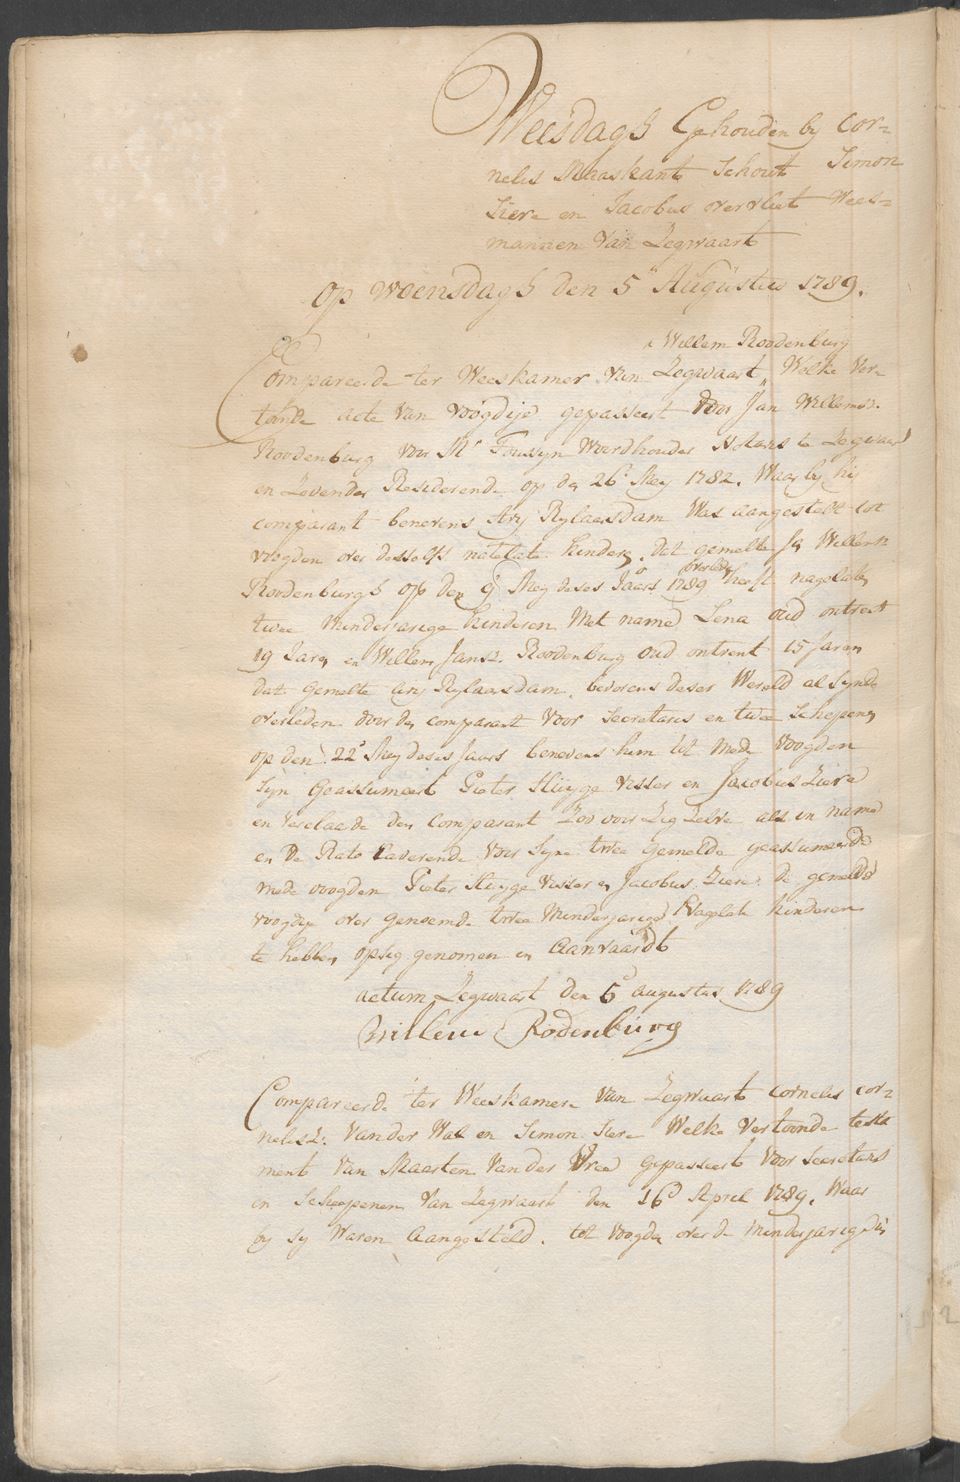 Weesdagh Gehouden by Cor=
nelis Maaskant Schout Simon
Siere en Jacobus overvliet Wees=
mannen van Zegwaart
Op woensdagh den 5 Augustus 1789.
Willem Roodenburg
Compareerde ter Weeskamer van Zegwaart, Welke Ver
toonde acte van voogdije gepasseert door Jan Willemsz.
Roodenburg voor Mr Woordhouder Notaris te Zegwaart
en Zevender Resideerende op den 26e Mey 1782. Waar by hij
comparant benevens Ary Rylaasdam Was aangestelt tot
voogden over desselfs natelate kinders, dat gemelte Jan Willemsz
Roodenburgh op den 9 Mey deses Jaars 1789 overleden heeft nagelaten
twee minderjarige kinderen Met name Lena oud ontrent
19 Jaren en Willem Jansz. Roodenburg oud ontrent 15 Jaren
dat gemelte Ary Rylaasdam, bevorens deser Wereld al synde
overleden door den comparant voor Secretaris en twee Schepenen
op den 22e Mey deses Jaars benevens hem tot mede voogden
syn Geassumeert Pieter Huyge Visser en Jacobus Ziere
en verclaarde den Comparant Zoo voor Zig Zelve als in name
en De Rato Caverende voor syne twee gemelde geassumeerde
mede voogden Pieter Huyge Visser en Jacobus Ziere de gemelde
voogdije over genoemde twee Minderjarige Nagelate kinderen
te hebben opsig genomen en Aanvaardt
actum Zegwaart den 5e augustus 1789
Willem Rodenburg
Compareerde ter Weeskamer van Zegwaart Cornelis cor=
nelisz. Van der Wal en Simon Siere Welke vertoonde testa
ment van Maarten Van der Vree gepasseert voor Secretaris
en Scheepenen van Zegwaart den 16e April 1789, Waar
by sy Waren aangesteld, tot voogden over de minderjarige